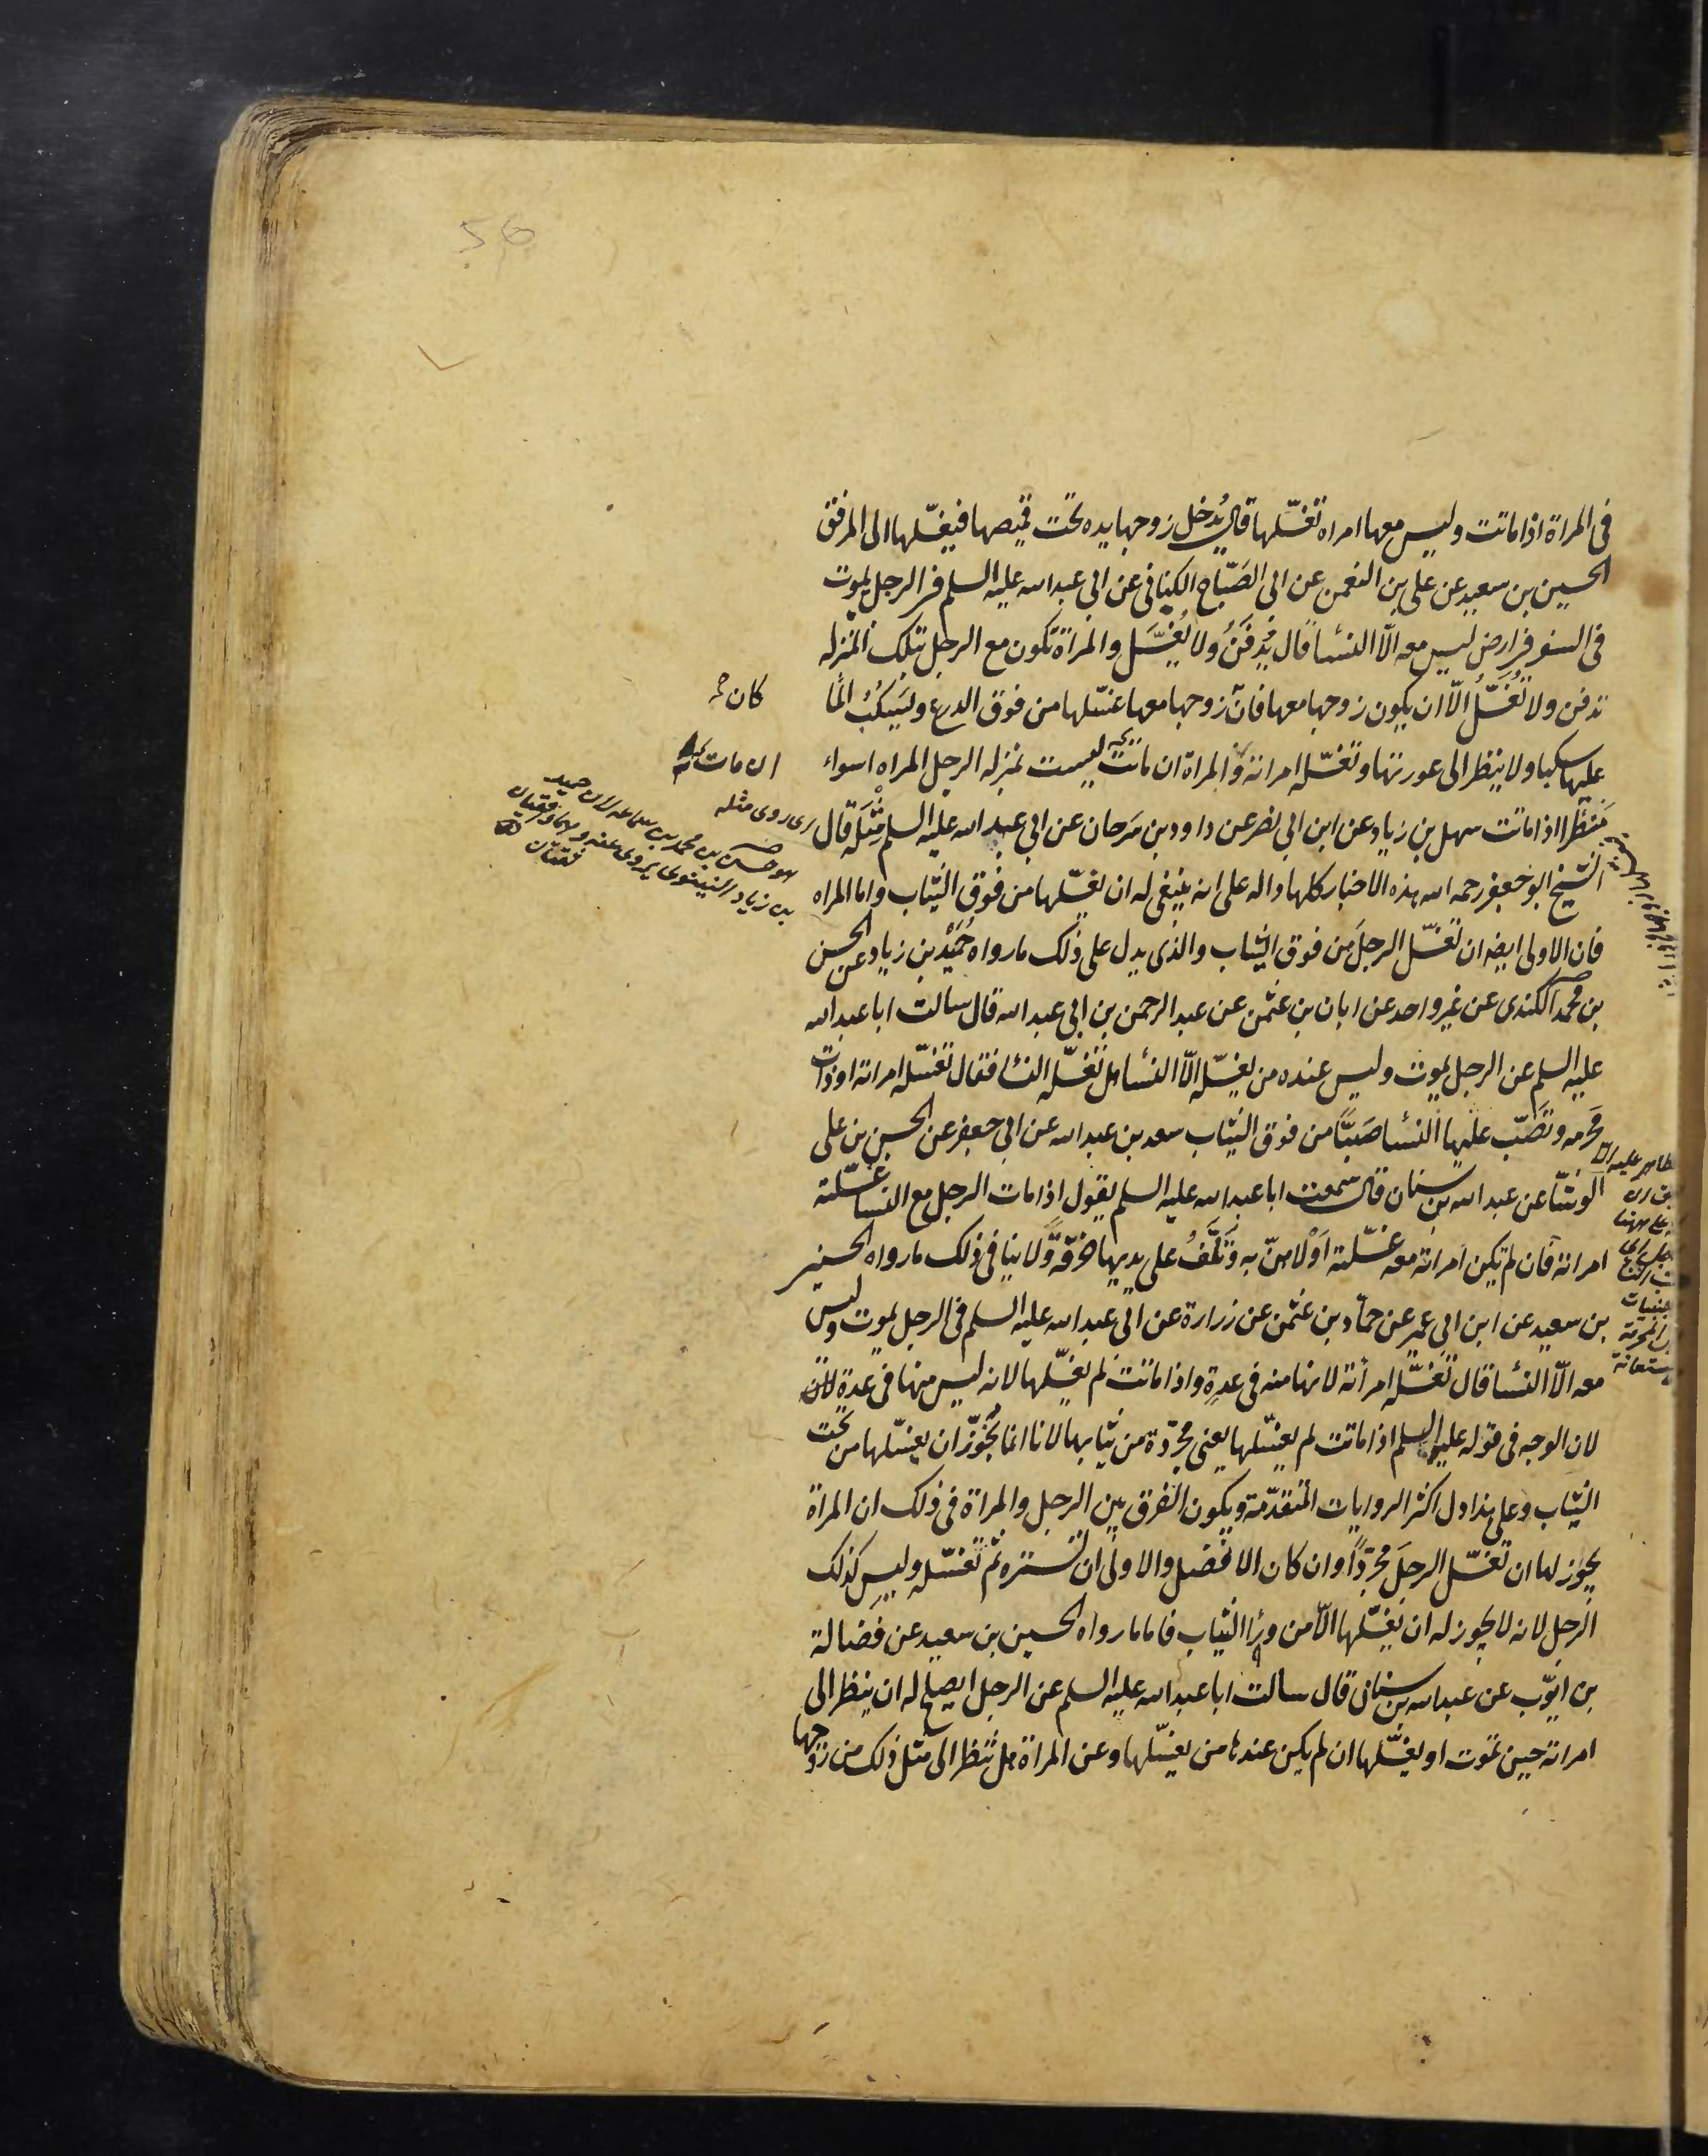 56
فى المراة اذا ماتت وليس معها امراه تغسّلها قال يُدخل زوجها يده تحت قميصها فيغسّلها الى المرفق
الحسين بن سعيد عن على بن النعمن عن ابى الصَبّاح الكنانى عن ابى عبد الله عليه السلم فى الرجل يموت
فى السفر فى ارض ليس معه الّا النسا قال يُدفَنُ ولا يُغسَّل والمراة تكون مع الرجل بتلك المنزله
تدفن ولا تُغسَّلُ الّا ان يكون زوجها معها فان زوجها معها غسّلها من فوق الدرع ويَسكُبُ الما
كان
عليها سكبا ولا ينظر الى عورتها وتغسّله امراته والمراة ان ماتت ليست بمنزله الرجل المراه اسواء
ان مات
مَنظَرا اذا ماتت سهل بن زياد عن ابن ابى نصر عن داود بن سَرحان عن ابى عبد الله عليه السلم مثله قال
اى روى مثله
الشيخ ابو جعفر رحمه الله هذه الاخبار كلها داله على انه ينبغى له ان يغسّلها من فوق الثياب واما المراه
فان الاولى ايضا ان تغسّل الرجلَ من فوق الثياب والذى يدل على ذلك ما رواه حُمَيْد بن زياد عن الحسن
بن محمد الكندى عن غير واحد عن ابان بن عثمن عن عبد الرحمن بن ابى عبد الله قال سالت ابا عبد الله
عليه السلم عن الرجل يموت وليس عنده من يغسّله الّا النسا هل تغسّله النسا فقال تغسّله امراته او ذات
مَحرمه وتَصُبّ عليها النسا صَبًّا من فوق الثياب سعد بن عبد الله عن ابى جعفر عن الحسن بن على
الوشّا عن عبد الله بن سنان قال سمعت ابا عبد الله عليه السلم يقول اذا مات الرجل مع النسا غسّلته
امراته فان لم تكن امراته معه غسّلته اَوْلاهنّ به وتَلُفُّ على يديها خرقةً ولا ينافى ذلك ما رواه الحسين
بن سعيد عن ابن ابى عمير عن حمّاد بن عثمن عن زرارة عن ابى عبد الله عليه السلم فى الرجل يموت وليس
معه الّا النسا قال تغسّله امرأته لانها منه فى عدةٍ واذا ماتت لم يغسّلها لانه ليس منها فى عدةٍ لان
لان الوجه فى قوله عليه السلم اذا ماتت لم يغسّلها يعنى مجرّدة من ثيابها لانا انما نُجَوّز ان يغسّلها من تحت
الثياب وعلى هذا دل اكثر الروايات المتقدّمة ويكون الفرق بين الرجل والمراة فى ذلك ان المراة
يجوز لها ان تغسّل الرجلَ مجرّدًا وان كان الافضل والاولى ان تستره ثم تغسّله وليس كذلك
الرجل لانه لا يجوز له ان يغسّلها الّا من ورا الثياب فاما ما رواه الحسين بن سعيد عن فَضالة
بن ايّوب عن عبد الله بن سنان قال سالت ابا عبد الله عليه السلم عن الرجل ايصلح له ان ينظر الى
امراته حين تموت او يغسّلها ان لم يكن عندها من يغسّلها وعن المراة هل تنظر الى مثل ذلك من زوجها